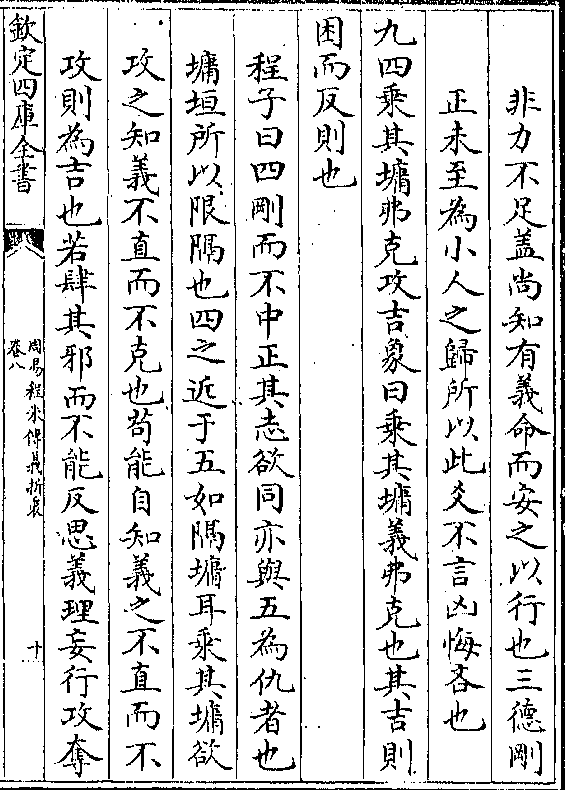 非力不足蓋尚知有義命而安之以行也三德剛
正未至為小人之歸所以此爻不言凶悔吝也
九四乘其墉弗克攻吉象曰乘其墉義弗克也其吉則
困而反則也
程子曰四剛而不中正其志欲同亦與五為仇者也
墉垣所以限隔也四之近于五如隔墉耳乘其墉欲
攻之知義不直而不克也苟能自知義之不直而不
攻則為吉也若肆其邪而不能反思義理妄行攻奪
欽定四庫全書
周易程朱傳義折衷
卷八
十